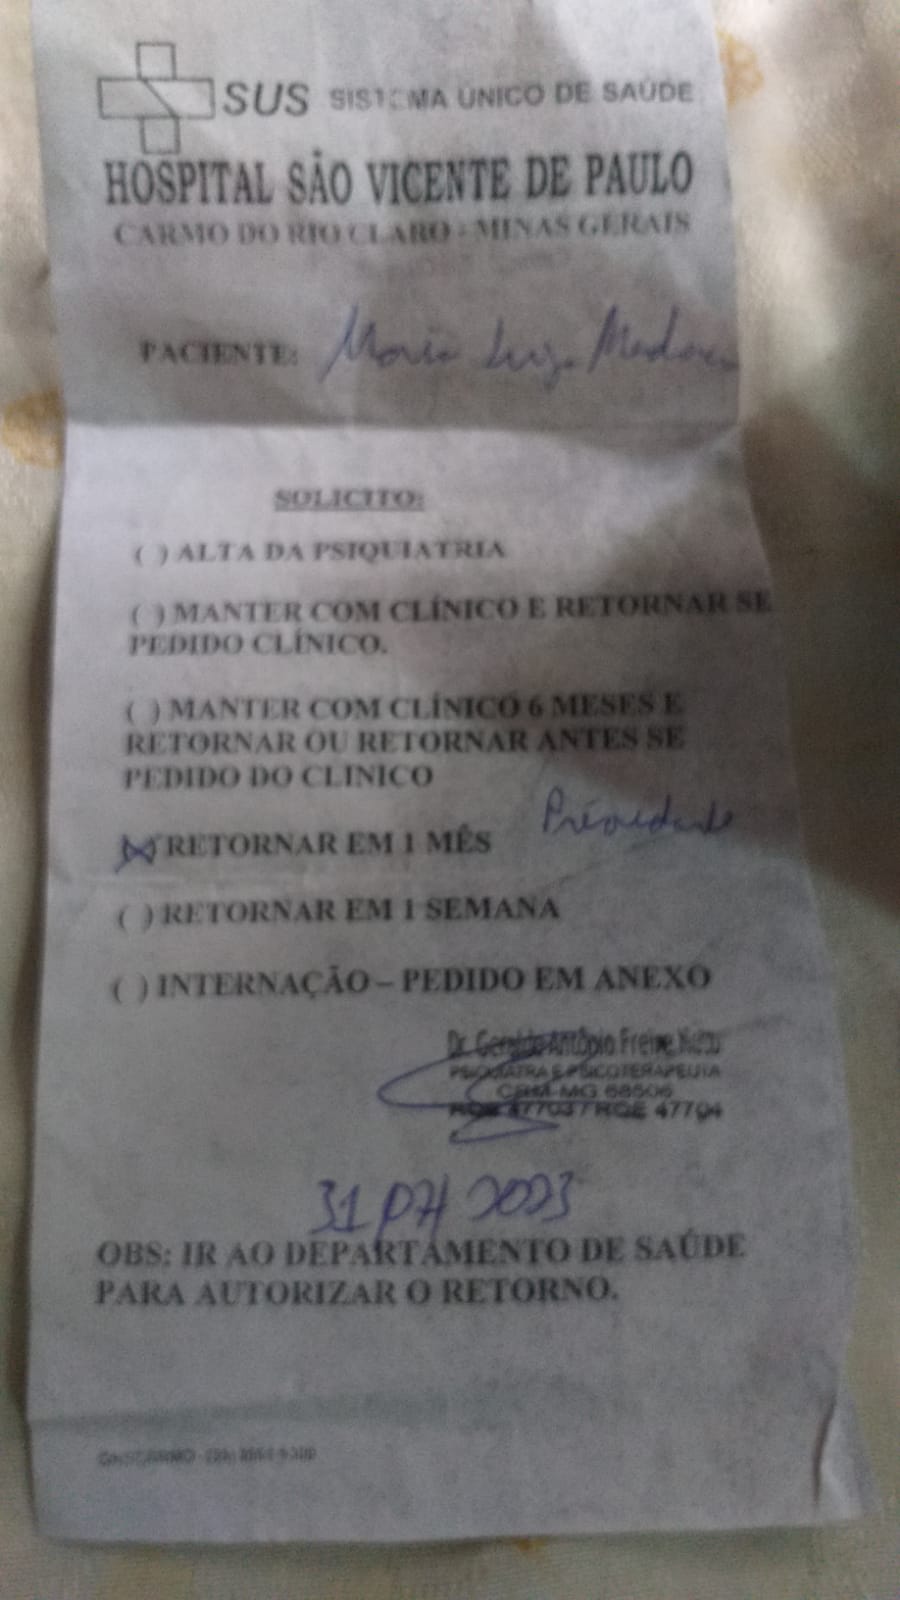 SUS SISTEMA ÚNICO DE SAÚDE
HOSPITAL SÃO VICENTE DE PAULO
CARMO DO RIO CLARO - MINAS GERAIS
PACIENTE: Maria Luiza
SOLICITO:
( ) ALTA DA PSIQUIATRIA
( ) MANTER COM CLÍNICO E RETORNAR SE
PEDIDO CLÍNICO.
( ) MANTER COM CLÍNICO 6 MESES E
RETORNAR OU RETORNAR ANTES SE
PEDIDO DO CLINICO
(X) RETORNAR EM 1 MÊS
( ) RETORNAR EM 1 SEMANA
( ) INTERNAÇÃO – PEDIDO EM ANEXO
Dr. Geraldo Antônio Freire
PSIQUIATRA E PSICOTERAPEUTA
CRM-MG 68506
RQE 47703 / RQE 47704
31
OBS: IR AO DEPARTAMENTO DE SAÚDE
PARA AUTORIZAR O RETORNO.